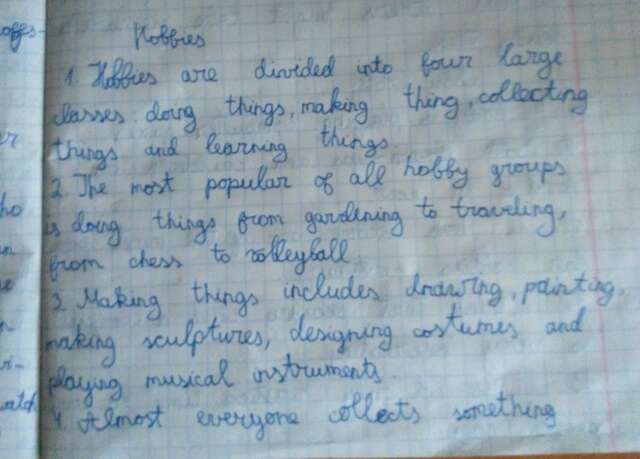 Hobbies
1. Hobbies are divided into four large
classes: doing things, making thing, collecting
things and learning things
2. The most popular of all hobby groups
is doing things from gardining to traveling,
from chess to volleyball
3. Making things includes drawing, painting,
making sculptures, designing costumes and
playing musical instruments.
4. Almost everyone collects something